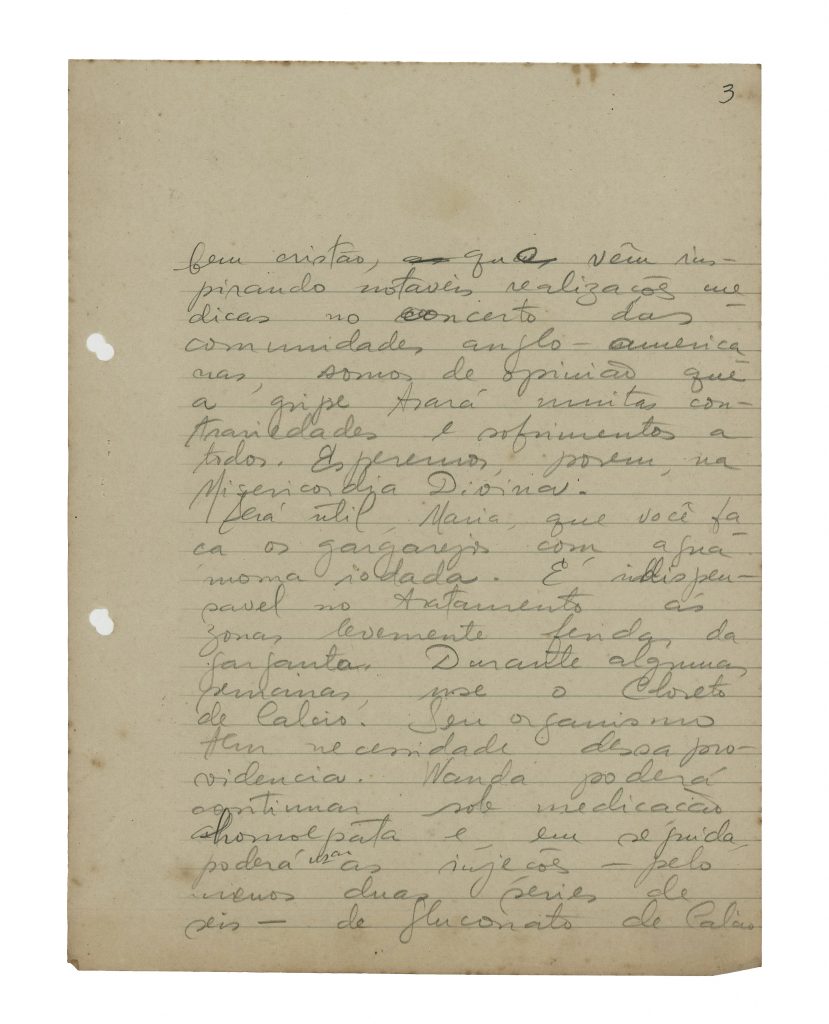 3
bem cristão, que vêm ins-
pirando notaveis realizações me-
dicas no concerto das
comunidades anglo-america
nas, somos de opinião que
a gripe trará muitas con-
trariedades e sofrimentos a
todos. Esperemos, porem, na
Misericordia Divina.
Será útil, Maria, que você fa-
ca os gargarejos com agua
morna iodada. É indispen-
savel no tratamento ás
zonas levemente feridas da
garganta. Durante algumas
semanas, use o Cloreto
de Calcio. Seu organismo
tem necessidade dessa pro-
videncia. Wanda poderá
continuar sob medicação
homoepata e, em seguida,
poderá usar as injeções — pelo
menos duas séries de
seis — de Gluconato de Calcio